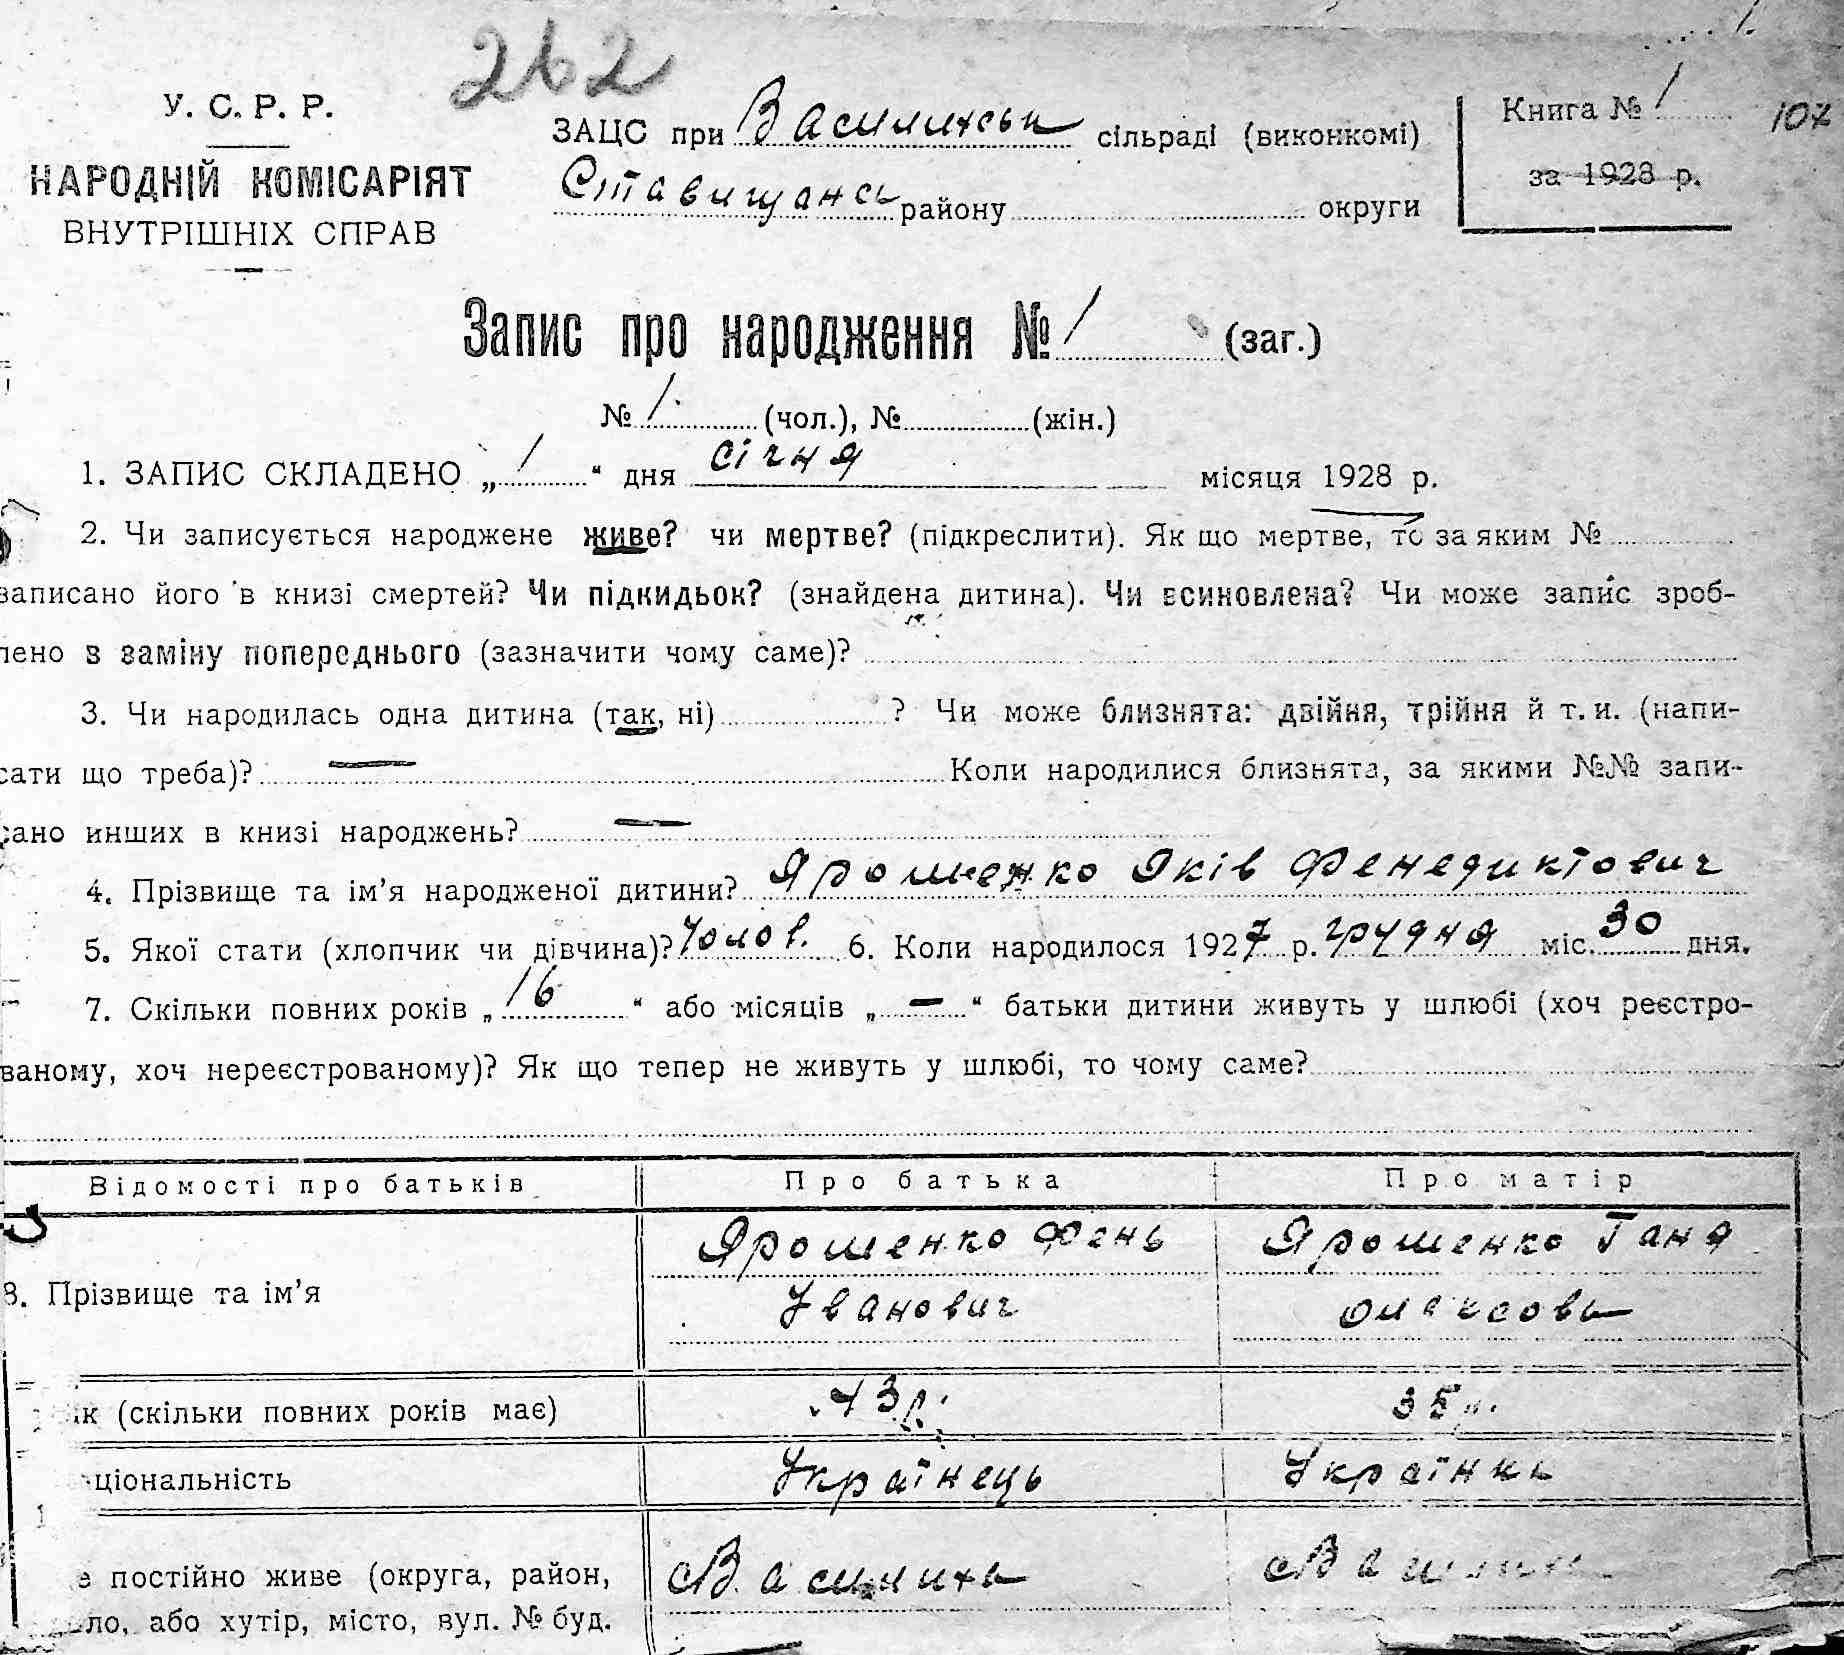 262
У. С. Р. Р.
НАРОДНІЙ КОМІСАРІЯТ
ВНУТРІШНІХ СПРАВ
ЗАЦС при Василихськ сільраді (виконкомі)
Ставищансь району округи
Книга № 1
107
за 1928 р.
Запис про народження № 1 (заг.)
№ 1 (чол.), № (жін.)
1. ЗАПИС СКЛАДЕНО „ 1 “ дня січня місяця 1928 р.
2. Чи записується народжене живе? чи мертве? (підкреслити). Як що мертве, то за яким №
записано його в книзі смертей? Чи підкидьок? (знайдена дитина). Чи всиновлена? Чи може запис зроб-
лено в заміну попереднього (зазначити чому саме)?
3. Чи народилась одна дитина (так, ні) ? Чи може близнята: двійня, трійня й т. и. (напи-
сати що треба)? — Коли народилися близнята, за якими №№ запи-
сано инших в книзі народжень? —
4. Прізвище та ім’я народженої дитини? Ярошенко Яків Фенедиктович
5. Якої стати (хлопчик чи дівчина)? Чолов. 6. Коли народилося 1927 р. грудня міс. 30 дня.
7. Скільки повних років „ 16 “ або місяців „ — “ батьки дитини живуть у шлюбі (хоч реєстро-
ваному, хоч нереєстрованому)? Як що тепер не живуть у шлюбі, то чому саме?
Відомості про батьків Про батька Про матір
8. Прізвище та ім’я
Ярошенко Фень Ярошенко Ганя
Іванович Олексовь
ік (скільки повних років має) 43 р. 35 р.
ціональність Українець Українкь
е постійно живе (округа, район, Василихь
ло, або хутір, місто, вул. № буд.